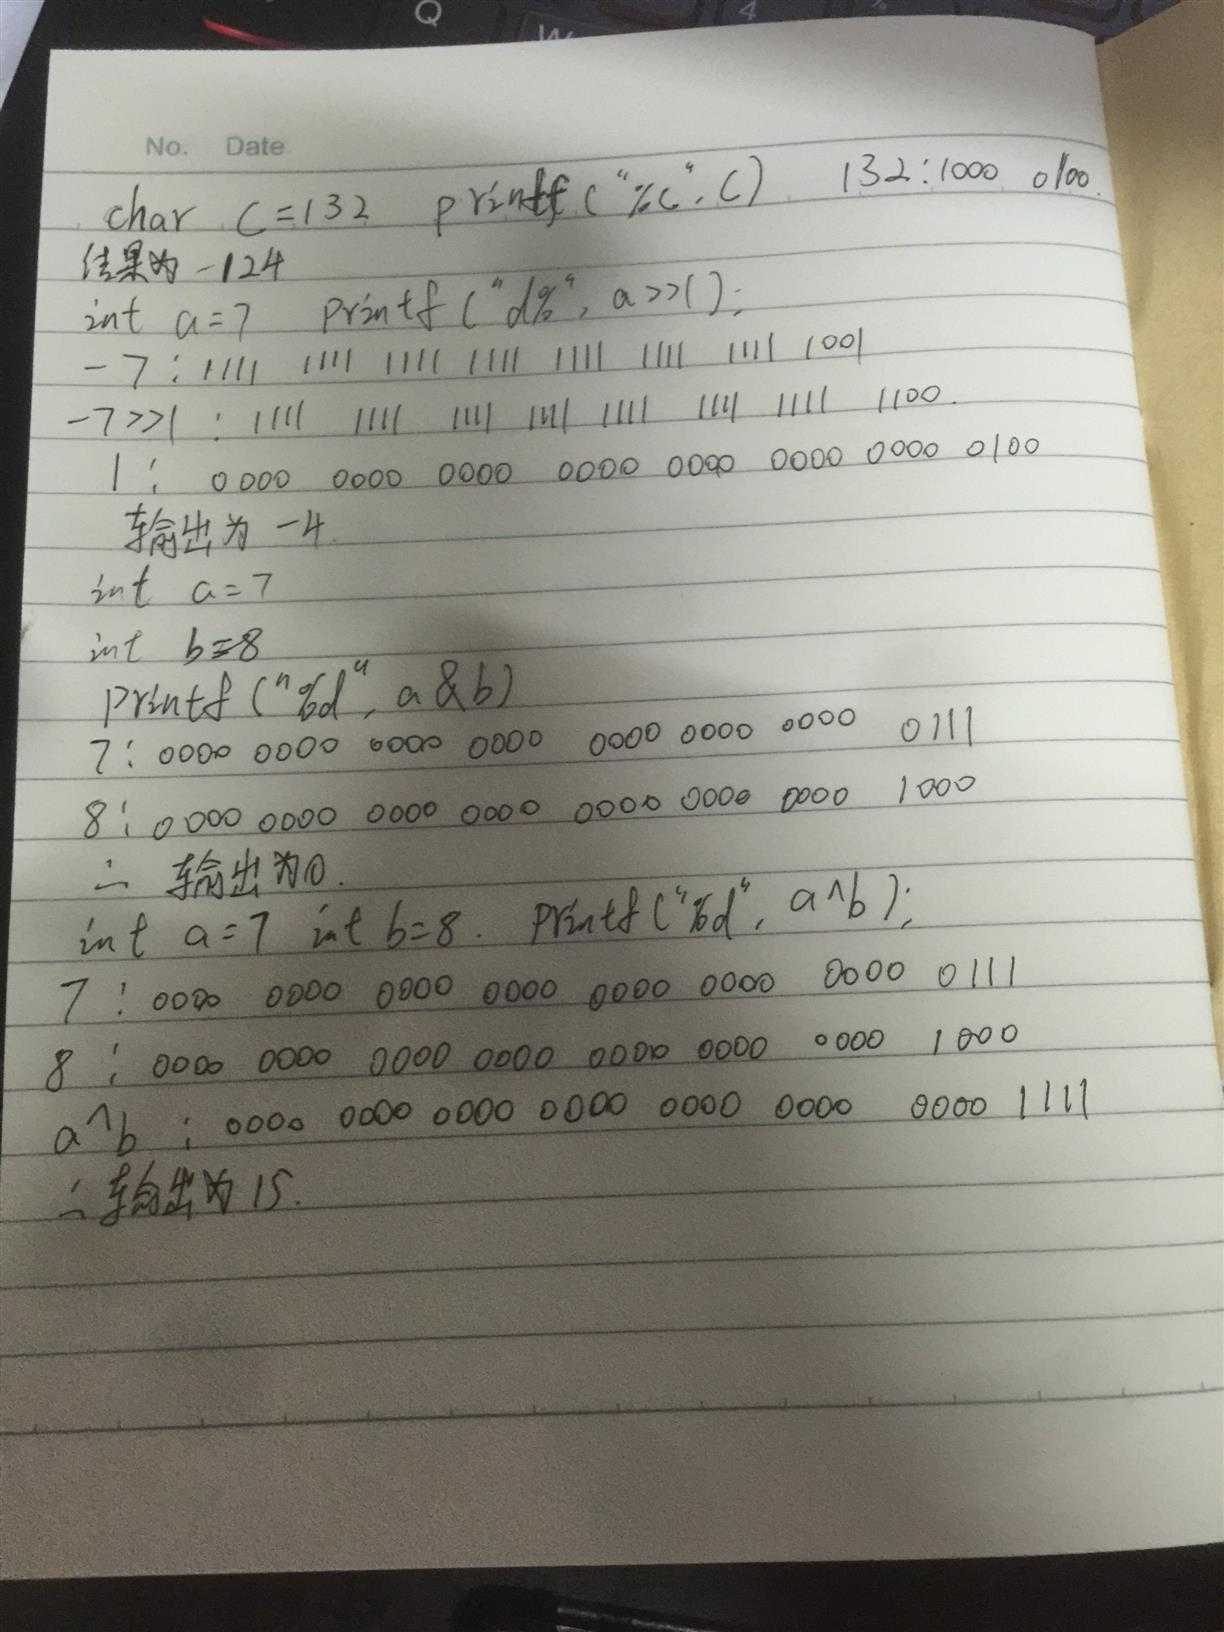 Q
W
4
No. Date
char C=132 printf("%c",C) 132:1000 0100.
结果为-124
int a=7 printf("d%",a>>1);
-7:1111 1111 1111 1111 1111 1111 1111 1001
-7>>1:1111 1111 1111 1111 1111 1111 1111 1100.
1: 0000 0000 0000 0000 0000 0000 0000 0100
输出为-4.
int a=7
int b=8
printf("%d",a&b)
7:0000 0000 0000 0000 0000 0000 0000 0111
8:0000 0000 0000 0000 0000 0000 0000 1000
∴ 输出为0.
int a=7 int b=8. printf("%d",a^b);
7:0000 0000 0000 0000 0000 0000 0000 0111
8:0000 0000 0000 0000 0000 0000 0000 1000
a^b:0000 0000 0000 0000 0000 0000 0000 1111
∴输出为15.